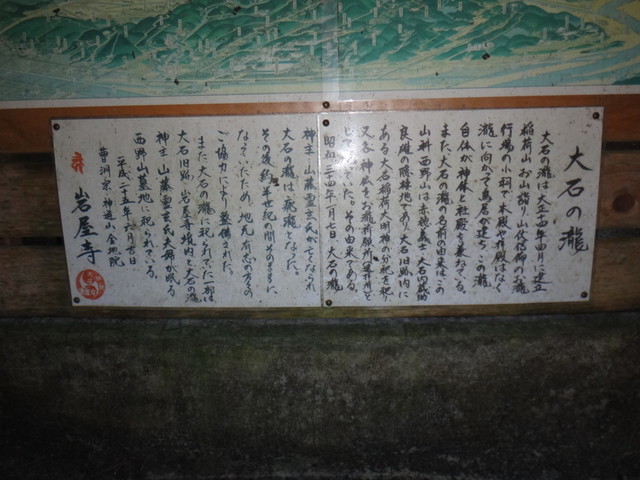 大石の瀧
大石の瀧は大正十四年四月に建立
稲荷山お山詣り山伏信仰のお瀧
行場の小祠で本殿、拝殿はなく
瀧に向かって鳥居が建ち、この瀧
自体が神体と社殿を兼ねている。
また、大石の瀧の名前の由来はこの
山科西野山は赤穂義士大石内蔵助
良雄の隠棲地であり大石旧跡内に
ある大石稲荷大明神の分祀を祀り
又各神祭をお瀧祈願所、遥拝所と
していた。その由来である。
昭和三四年一月七日大石の瀧
神主山藤霊玄氏が亡くなられ
大石の瀧は廃瀧となった。
その後約半世紀の間そのままに
なっていたため、地元有志の方々の
ご協力により整備された。
また、大石の瀧に祀られていた一部は
大石旧跡、岩屋寺境内と大石の瀧
神主山藤霊玄氏夫婦が眠る
西野山墓地に祀られている。
平成二五年六月吉日
曹洞宗神遊山金地院
岩屋寺